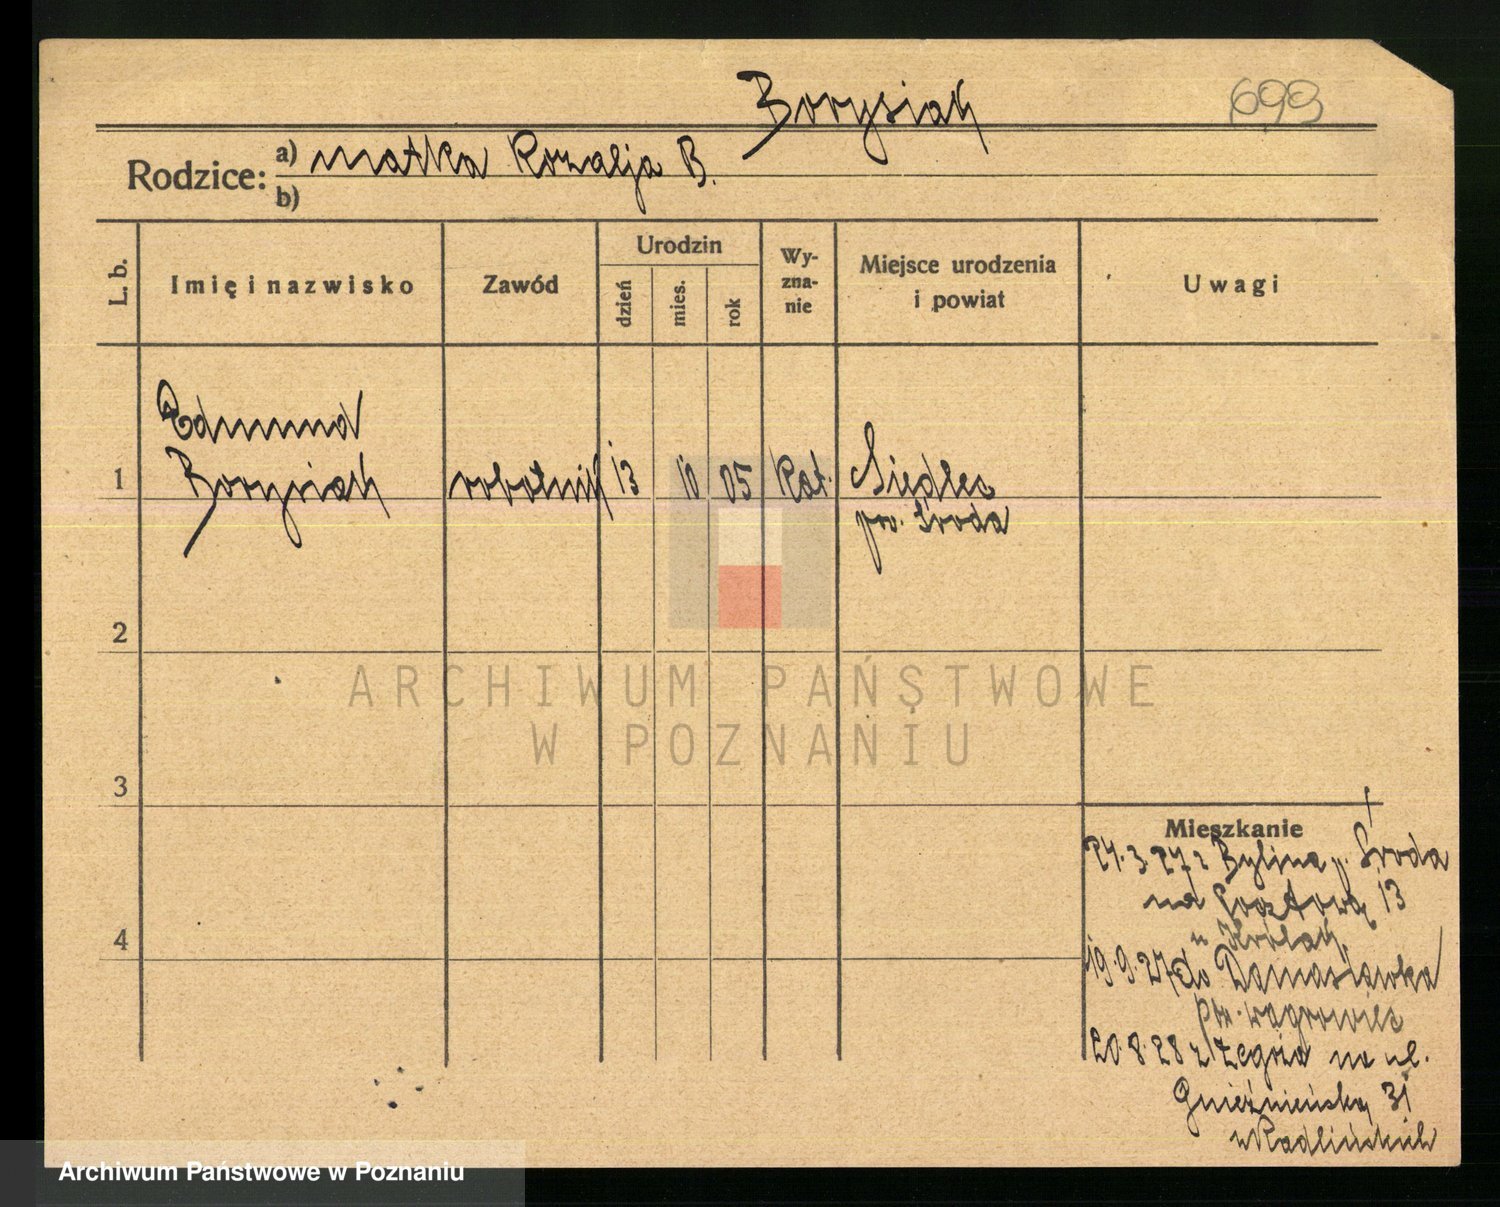 Borysiak 699
Rodzice: a) matka Rozalja B.
b)
L. b. Imię i nazwisko Zawód Urodzin dzień mies. rok Wyznanie Miejsce urodzenia i powiat Uwagi
Edmund
1 Borysiak robotnik 13 10 05 kat. Siedlec
pow. Środa
2
ARCHIWUM PAŃSTWOWE
W POZNANIU
3
Mieszkanie
24.3.27 z Bylina p. Środa
na Pocztową 13
u Królak
4
19.9.27 do Damasławka
pow. Wągrowiec
20.8.28 z na ul.
Gnieźnieńską 31
u Radlińskich
Archiwum Państwowe w Poznaniu